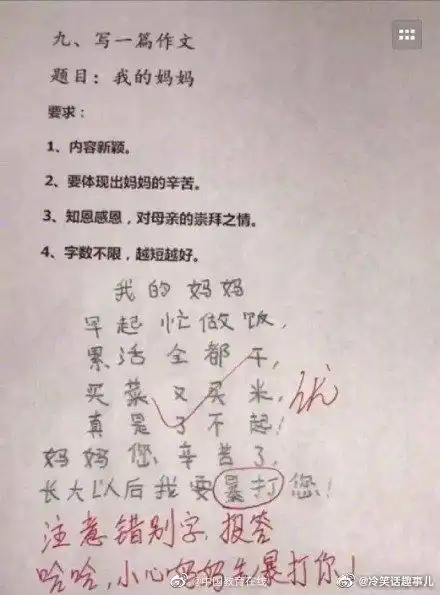 九、写一篇作文
题目：我的妈妈
要求：
1、内容新颖。
2、要体现出妈妈的辛苦。
3、知恩感恩，对母亲的崇拜之情。
4、字数不限，越短越好。
我的妈妈
早起忙做饭，
累活全都干，
买菜又买米，
优
真是了不起！
妈妈您辛苦了，
长大以后我要暴打您！
注意错别字，报答
哈哈，小心妈妈先暴打你！
@中国教育在线
@冷笑话趣事儿